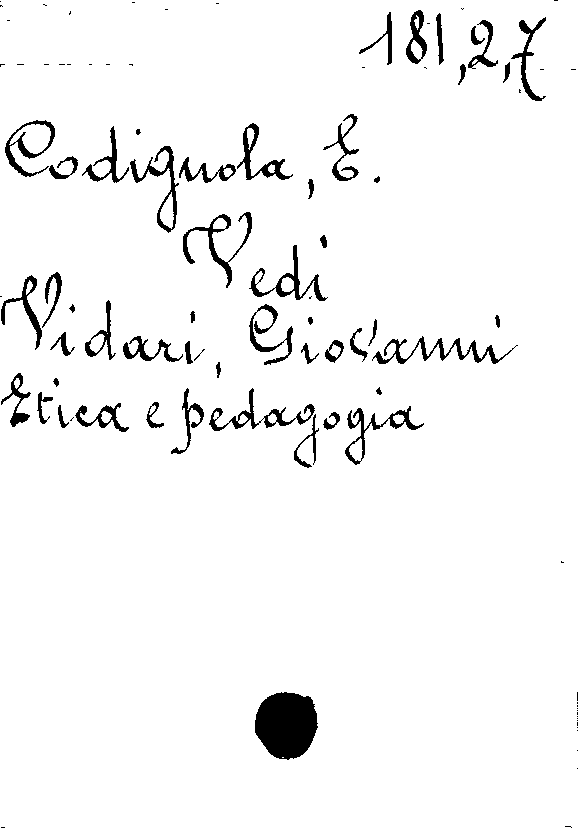 181,2,7
Codignola, E.
Vedi
Vidari, Giovanni
Etica e pedagogia